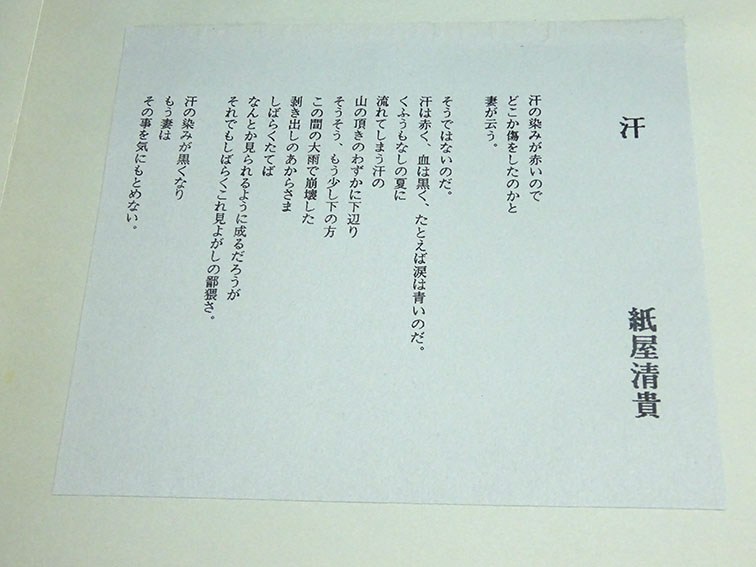 汗
紙屋清貴
汗の染みが赤いので
どこか傷をしたのかと
妻が云う。
そうではないのだ。
汗は赤く、血は黒く、たとえば涙は青いのだ。
くふうもなしの夏に
流れてしまう汗の
山の頂きのわずかに下辺り
そうそう、もう少し下の方
この間の大雨で崩壊した
剥き出しのあからさま
しばらくたてば
なんとか見られるように成るだろうが
それでもしばらくこれ見よがしの鄙猥さ。
汗の染みが黒くなり
もう妻は
その事を気にもとめない。